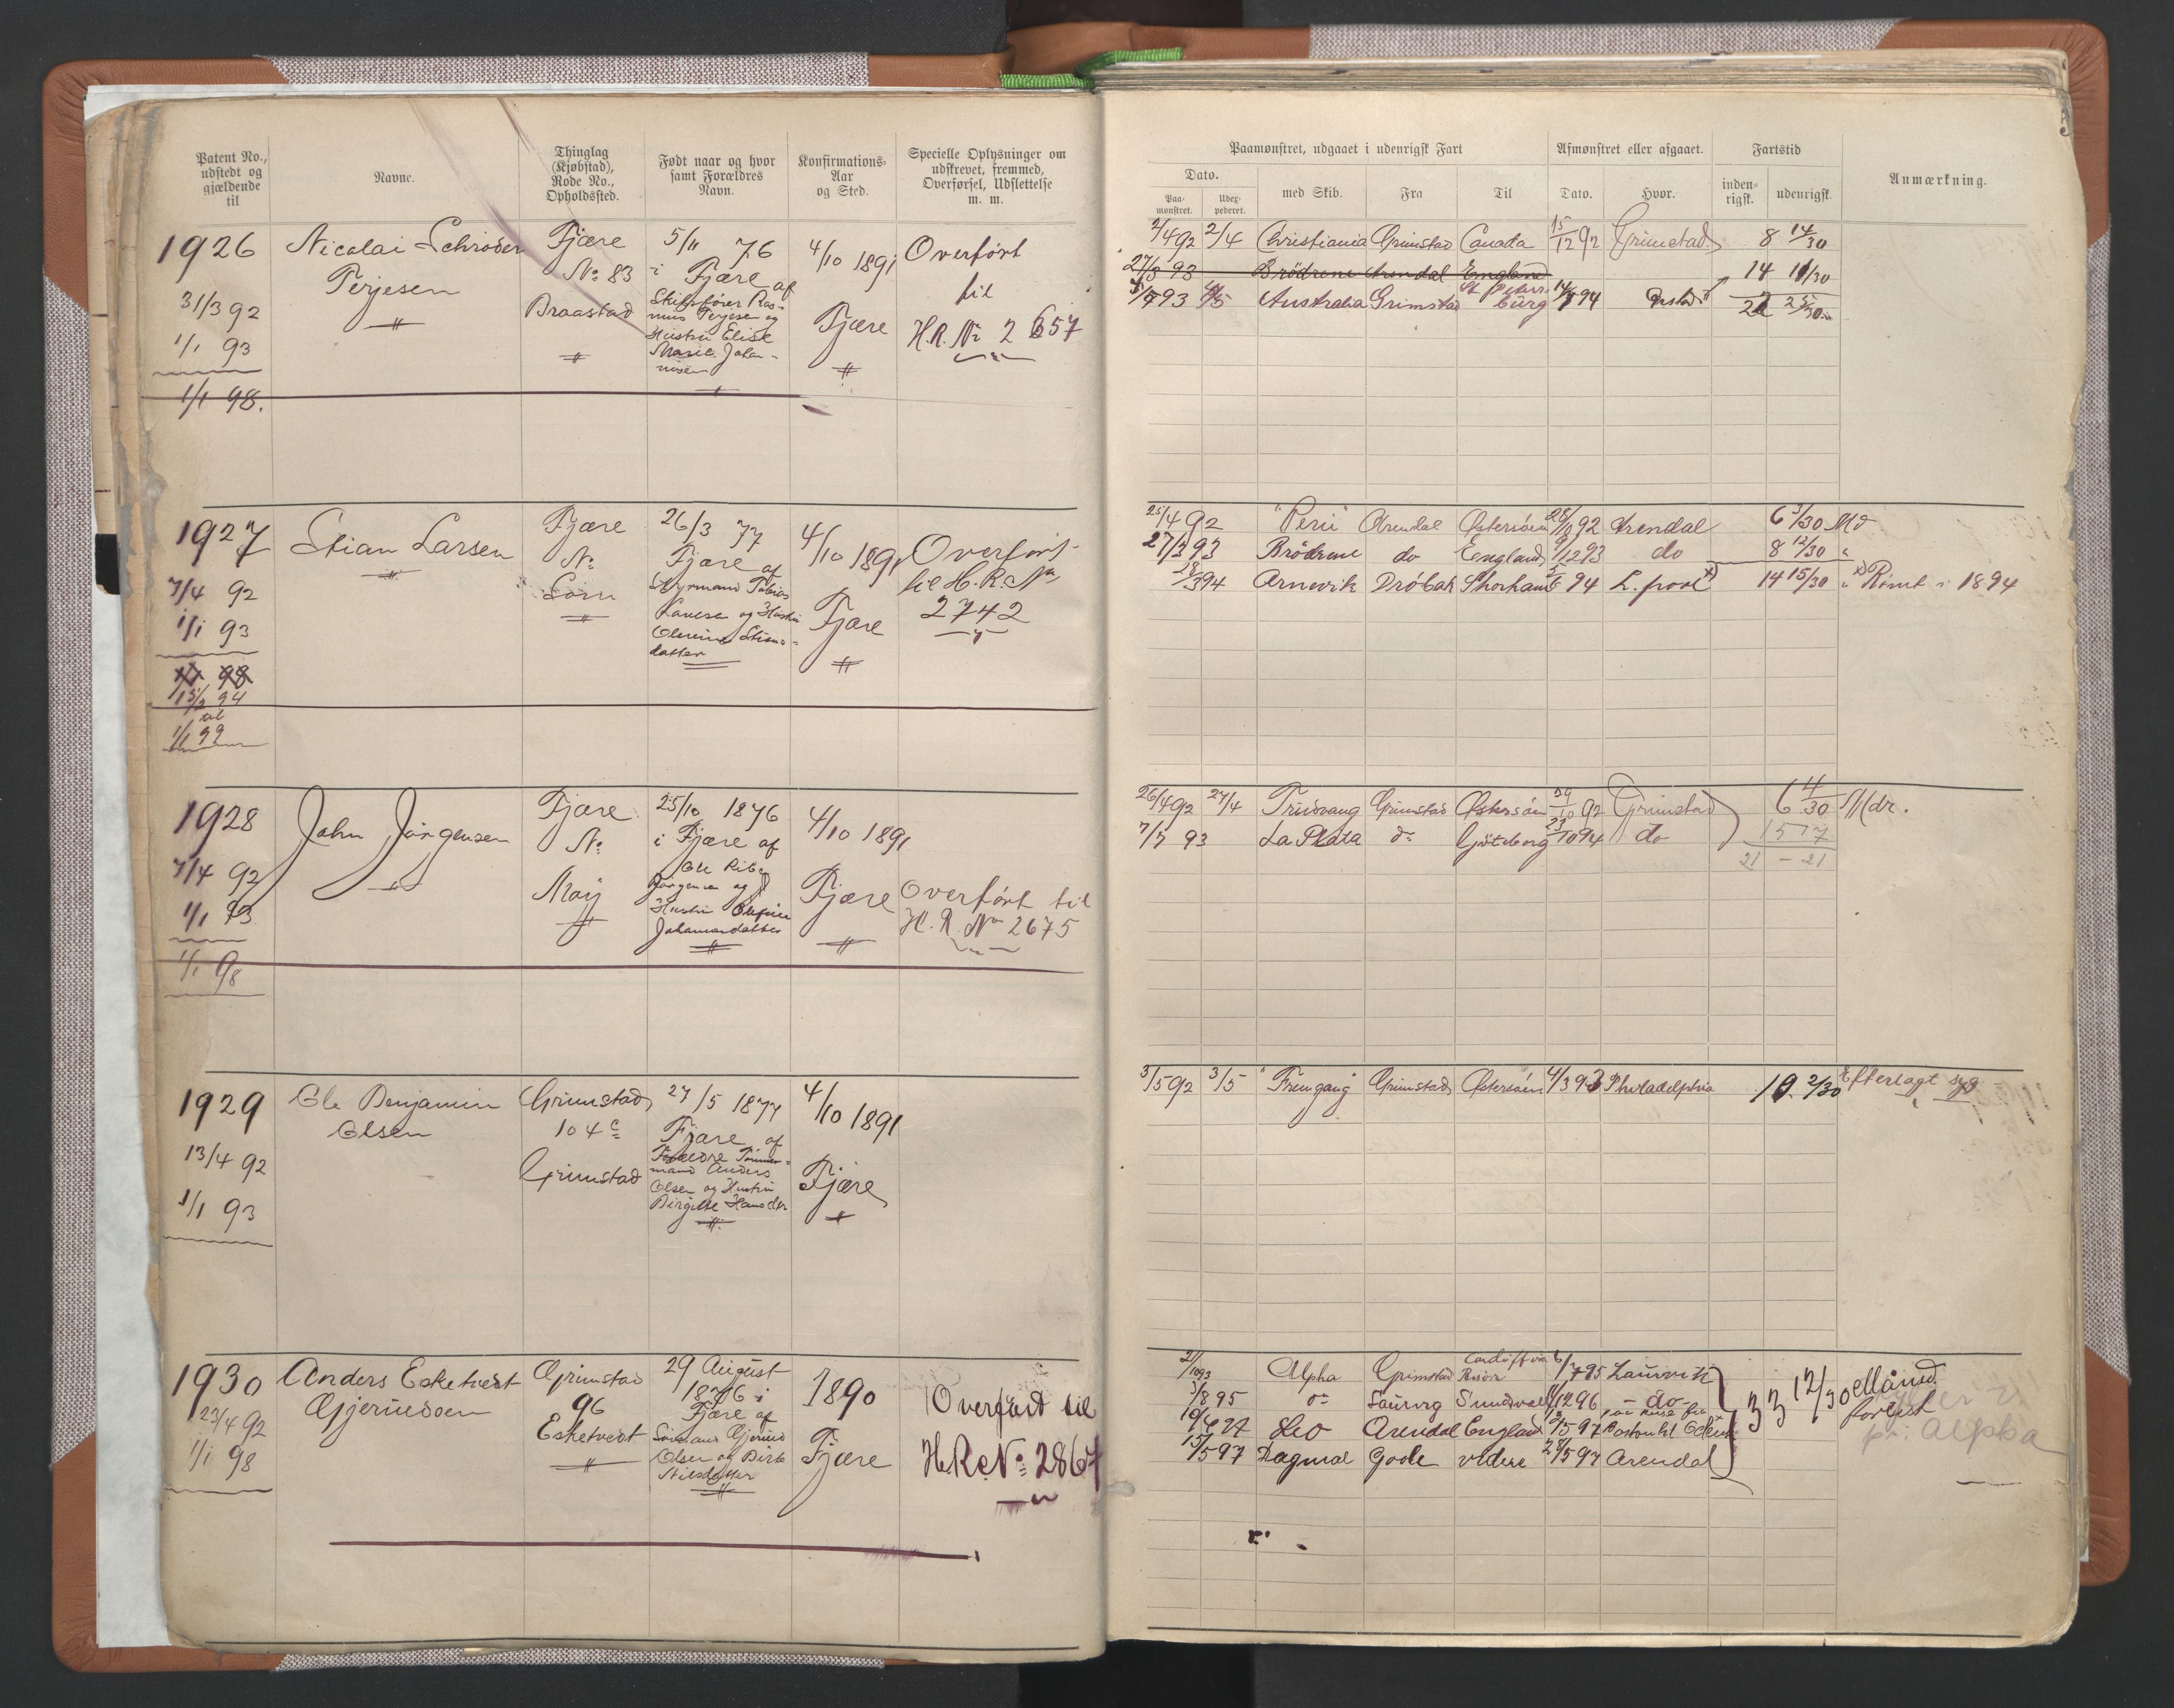 Patent No., udstedt og gjældende til
Navne.
Thinglag (Kjøbstad), Rode No., Opholdssted.
Født naar og hvor samt Forældres Navn.
Konfirmations-Aar og Sted.
Specielle Oplysninger om udskrevet, fremmed, Overførsel, Udslettelse m. m.
Paamønstret, udgaaet i udenrigsk Fart
Afmønstret eller afgaaet.
Fartstid
Anmærkning.
Dato.
Paa-mønstret.
Udex-pederet.
med Skib.
Fra
Til
Dato.
Hvor.
inden-rigsk.
udenrigsk.
1926
31/3 92
1/1 93
1/1 98.
Nicolai Schrøder
Terjesen
Fjære
No 83
Braastad
5/11 76
i Fjære af
Skibsfører Ras-
mus Terjesen og
Hustru Elise
Marie Johan-
nisen
4/10 1891
Fjære
Overført
til
H.R. No 2657
2/4 92 2/4 Christiania Grimstad Canada 15/12 92 Grimstad 8 14/30
27/3 93 Brödrene Arendal England 14 11/30
93 Australia Grimstad St. Peters-
burg 94
1927
7/4 92
1/1 93
1/1 98
94
til
1/1 99
Stian Larsen
Fjære
No
26/3 77
Fjære af
Styrmand Tobias
Larsen og Hustru
datter
4/10 1891
Fjære
Overført
til H.R. No
2742
25/4 92 "Peru" Arendal Østersøen 92 Arendal 6 3/30 Md
27/3 93 Brödrene do England 9/12 93 do 8 12/30 "
28/3 94 Arnevik Dröbak 94 L.pool 14 15/30 " x) Rømt i 1894
1928
7/4 92
1/1 93
1/1 98
John Jörgensen
Fjære
No
Moy
25/10 1876
i Fjære af
Ole Riber
Jörgensen og
Hustru
Johannesdatter
4/10 1891
Fjære
Overført til
H.R. No 2675
26/4 92 27/4 Trudvang Grimstad Østersøen 29/10 92 Grimstad 6 11/30 Mdr.
7/7 93 La Plata do Göteborg 21/10 94 do 15 17
21 - 21
1929
13/4 92
1/1 93
Ole Benjamin
Olsen
Grimstad
104 c
Grimstad
27/5 1877
Fjære af
Forældre Tømmer-
mand Anders
Olsen og Hustru
Birgitte Hansdtr
4/10 1891
Fjære
3/5 92 3/5 "Fremgang" Grimstad Østersøen 4/3 93 Philadelphia 10. 2/30 Efterlagt syg
1930
23/4 92
1/1 98
Anders Eskekvedt
Gjerudsen
Grimstad
96
Eskekvedt
29 August
1876 i
Fjære af
Sømand Gjerud
Olsen og Birte
Nilsdatter
1890
Fjære
Overført til
H.R. No 2867
21/10 93 Alpha Grimstad Cardiff via 6/7 95 Laurvik
3/8 95 do Laurvig Sundsvall 96 - do -
Leo Arendal England 97
15/5 97 Dagmar Goole videre 28/5 97 Arendal
33 12/30 Måned.
forlist
pr. Alpha